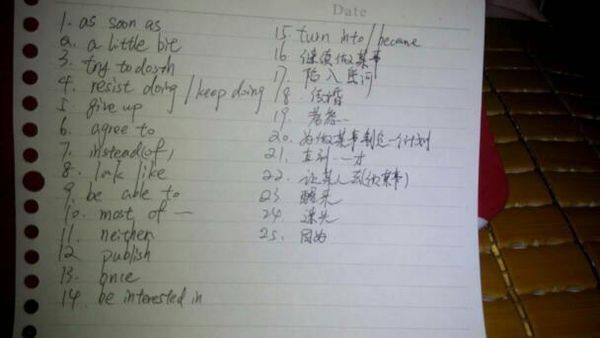 Date
1. as soon as
2. a little bit
3. try to dosth
4. resist doing / keep doing
5 give up
6. agree to
7. instead(of)
8. look like
9. be able to
10. most of 一
11. neither
12 publish
13. once
14. be interested in
15. turn into/became
16. 继续做某事
17. 陷入爱河
18. 结婚
19.
20. 为做某事制定一个计划
21. 直到…才
22. 让某人豆(做某事)
23. 醒来
24.
25. 因为